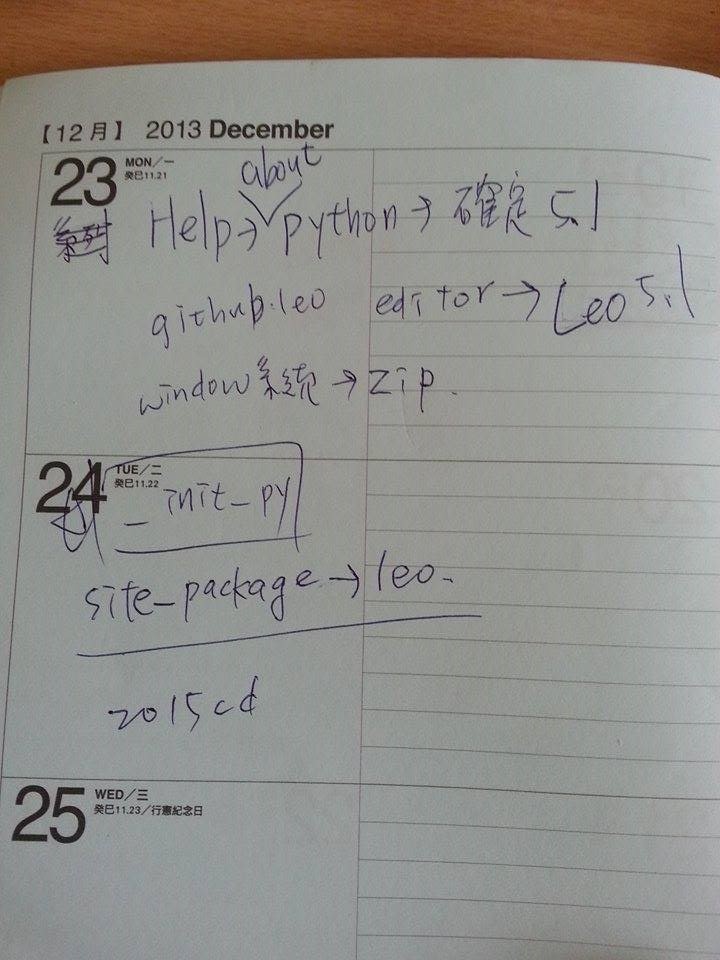 【12月】 2013 December
23 MON／一
癸巳11.21
about
Help→ python→ 確定 5.1
github.leo editor→ Leo 5.1
window系統→zip.
24 TUE／二
癸巳11.22
_init_py
site_package→leo.
2015cd
25 WED／三
癸巳11.23／行憲紀念日